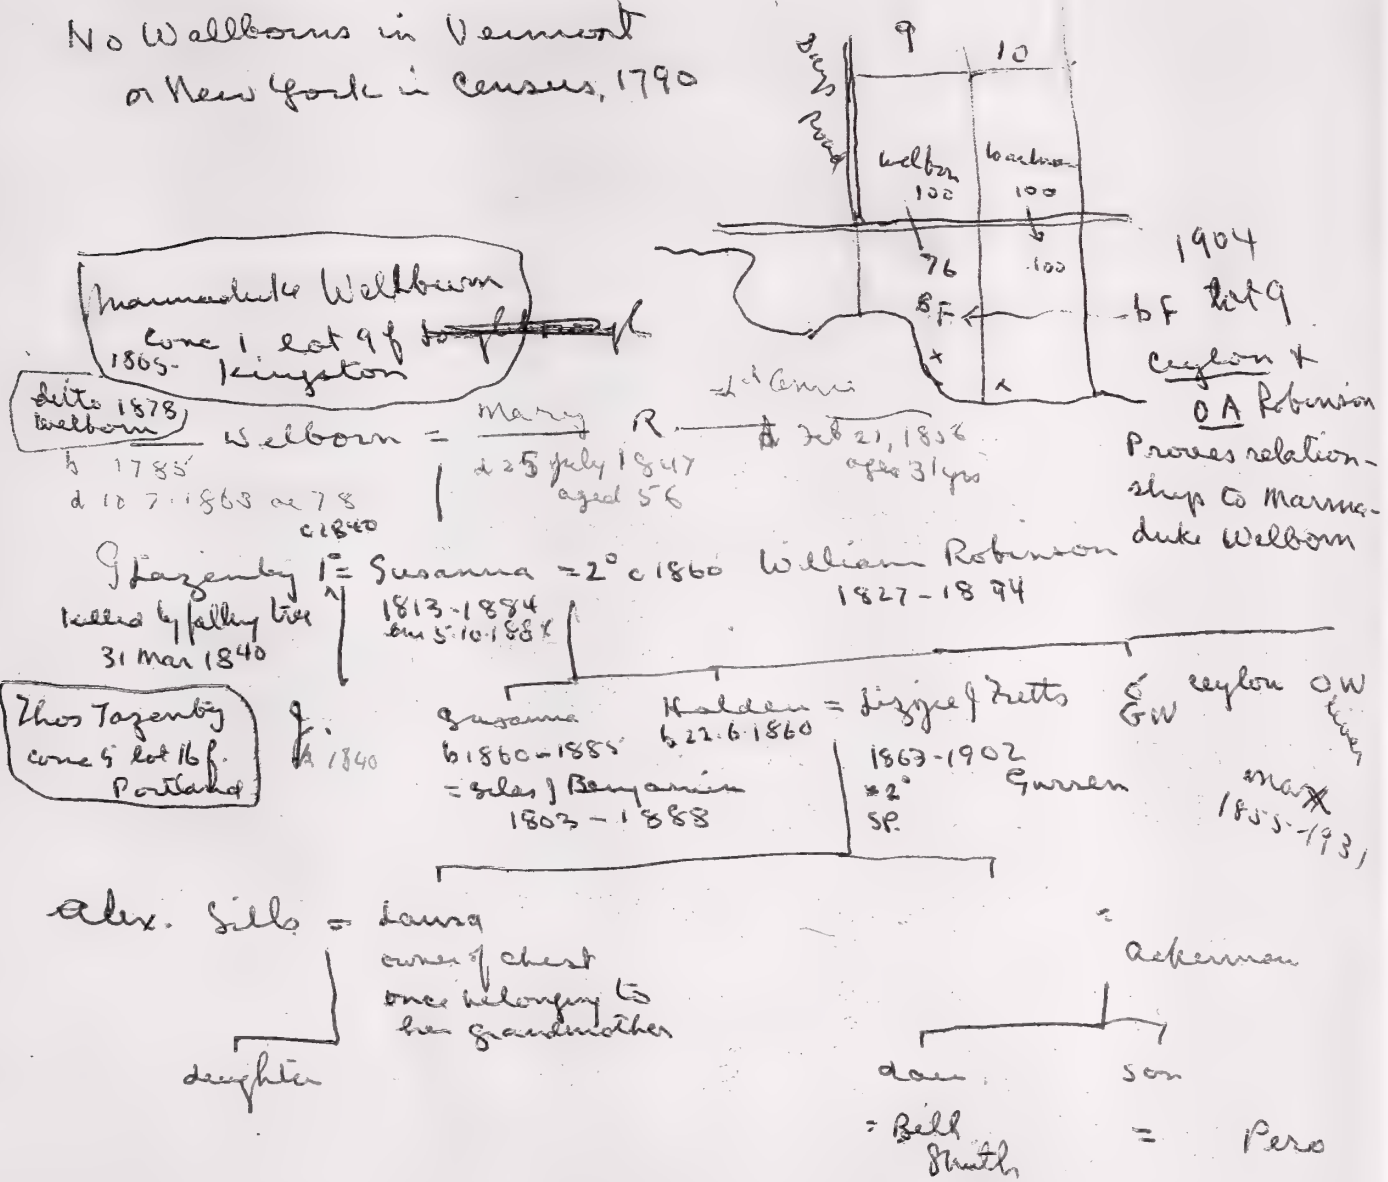 No Wellborns in Vermont
or New York in Census, 1790
Days Road
9 10
Welborn
100 100
76 100
BF
BF lot 9
1904
Ceylon +
OA Robinson
Proves relation-
ship to Marma-
duke Welborn
Marmaduke Wellburn
Conc 1 lot 9 of
1865- Kingston
ditto 1878
Welborn
Welborn = Mary R.
b 1785
d 10.7.1863 ae 78
d 25 July 1847
aged 56
d Feb 21, 1856
aged 31 yrs
c 1840
G Lazenby 1° = Susanna = 2° c 1860 William Robinson
killed by falling tree
31 Mar 1840
1813-1884
1827-1894
Thos Lazenby
conc 5 lot 16 f.
Portland
b 1840
Susanna
b 1860-1885
= Silas J Benjamin
1803-1888
Halden = Lizzie J Fretts
b 22.6.1860
1863-1902
=2°
SP.
GW
Ceylon OW
Oliver
Mary
1855-1931
Alex. Sills = Laura
owner of chest
once belonging to
her grandmother
daughter
=
Ackerman
dau. son
= Bill
Smith
= Pero